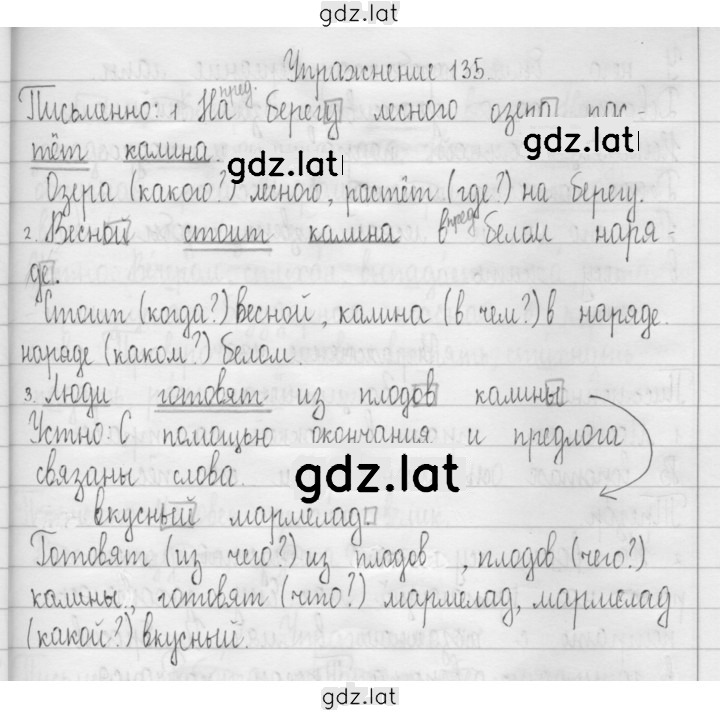 gdz.lat
Упражнение 135.
пред.
Письменно: 1. На берегу лесного озера рас-
тёт калина.
gdz.lat
gdz.lat
Озера (какого?) лесного, растёт (где?) на берегу.
пред.
2. Весной стоит калина в белом наря-
де.
Стоит (когда?) весной, калина (в чем?) в наряде.
наряде (каком?) белом.
3. Люди готовят из плодов калины
Устно: С помощью окончания и предлога
связаны слова.
gdz.lat
вкусный мармелад
Готовят (из чего?) из плодов, плодов (чего?)
калины, готовят (что?) мармелад, мармелад
(какой?) вкусный.
gdz.lat